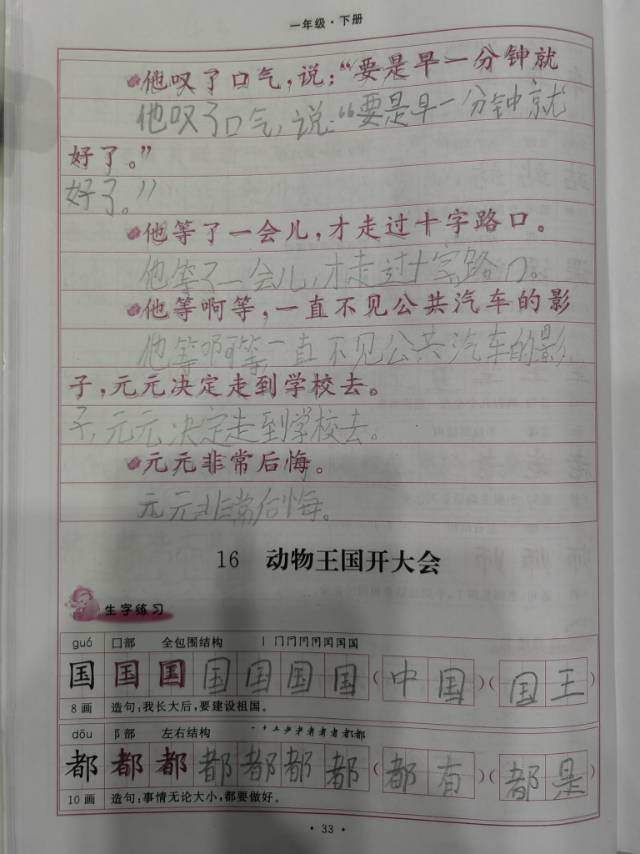 一年级·下册
他叹了口气，说：“要是早一分钟就
他叹了口气，说：“要是早一分钟就
好了。”
好了。”
他等了一会儿，才走过十字路口。
他等了一会儿，才走过十字路口。
他等啊等，一直不见公共汽车的影
他等啊等一直不见公共汽车的影
子，元元决定走到学校去。
子，元元决定走到学校去。
元元非常后悔。
元元非常后悔。
16 动物王国开大会
生字练习
guó 囗部 全包围结构
国 国 国 国 国 国 国 （中国）（国王）
8画 造句：我长大后，要建设祖国。
dōu 阝部 左右结构
都 都 都 都 都 都 都 （都有）（都是）
10画 造句：事情无论大小，都要做好。
·33·